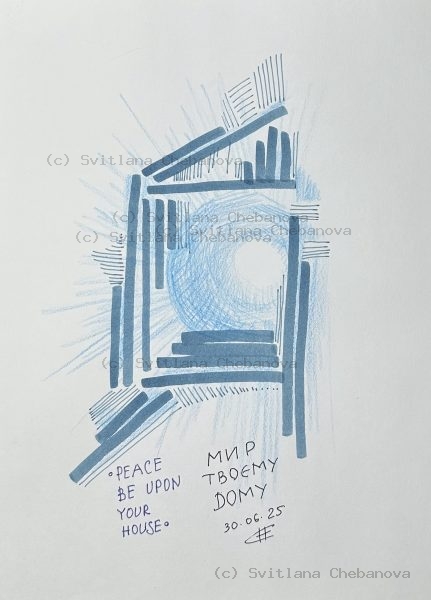 (c) Svitlana Chebanova
(c) Svitlana Chebanova
(c) Svitlana Chebanova
(c) Svitlana Chebanova
•PEACE
BE UPON
YOUR
HOUSE•
МИР
ТВОЄМУ
ДОМУ
30.06.25
(c) Svitlana Chebanova